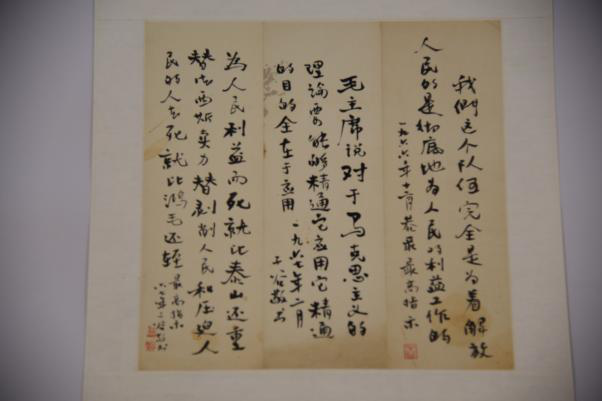 我們这个队伍完全是为着解放
人民的是彻底地为人民的利益工作的
一九六六年十二月恭录最高指示
毛主席说对于马克思主义的
理论要能够精通它应用它精通
的目的全在于应用
一九六七年二月
子谷敬书
为人民利益而死就比泰山还重
替法西斯卖力替剥削人民和压迫人
民的人去死就比鸿毛还轻
最高指示